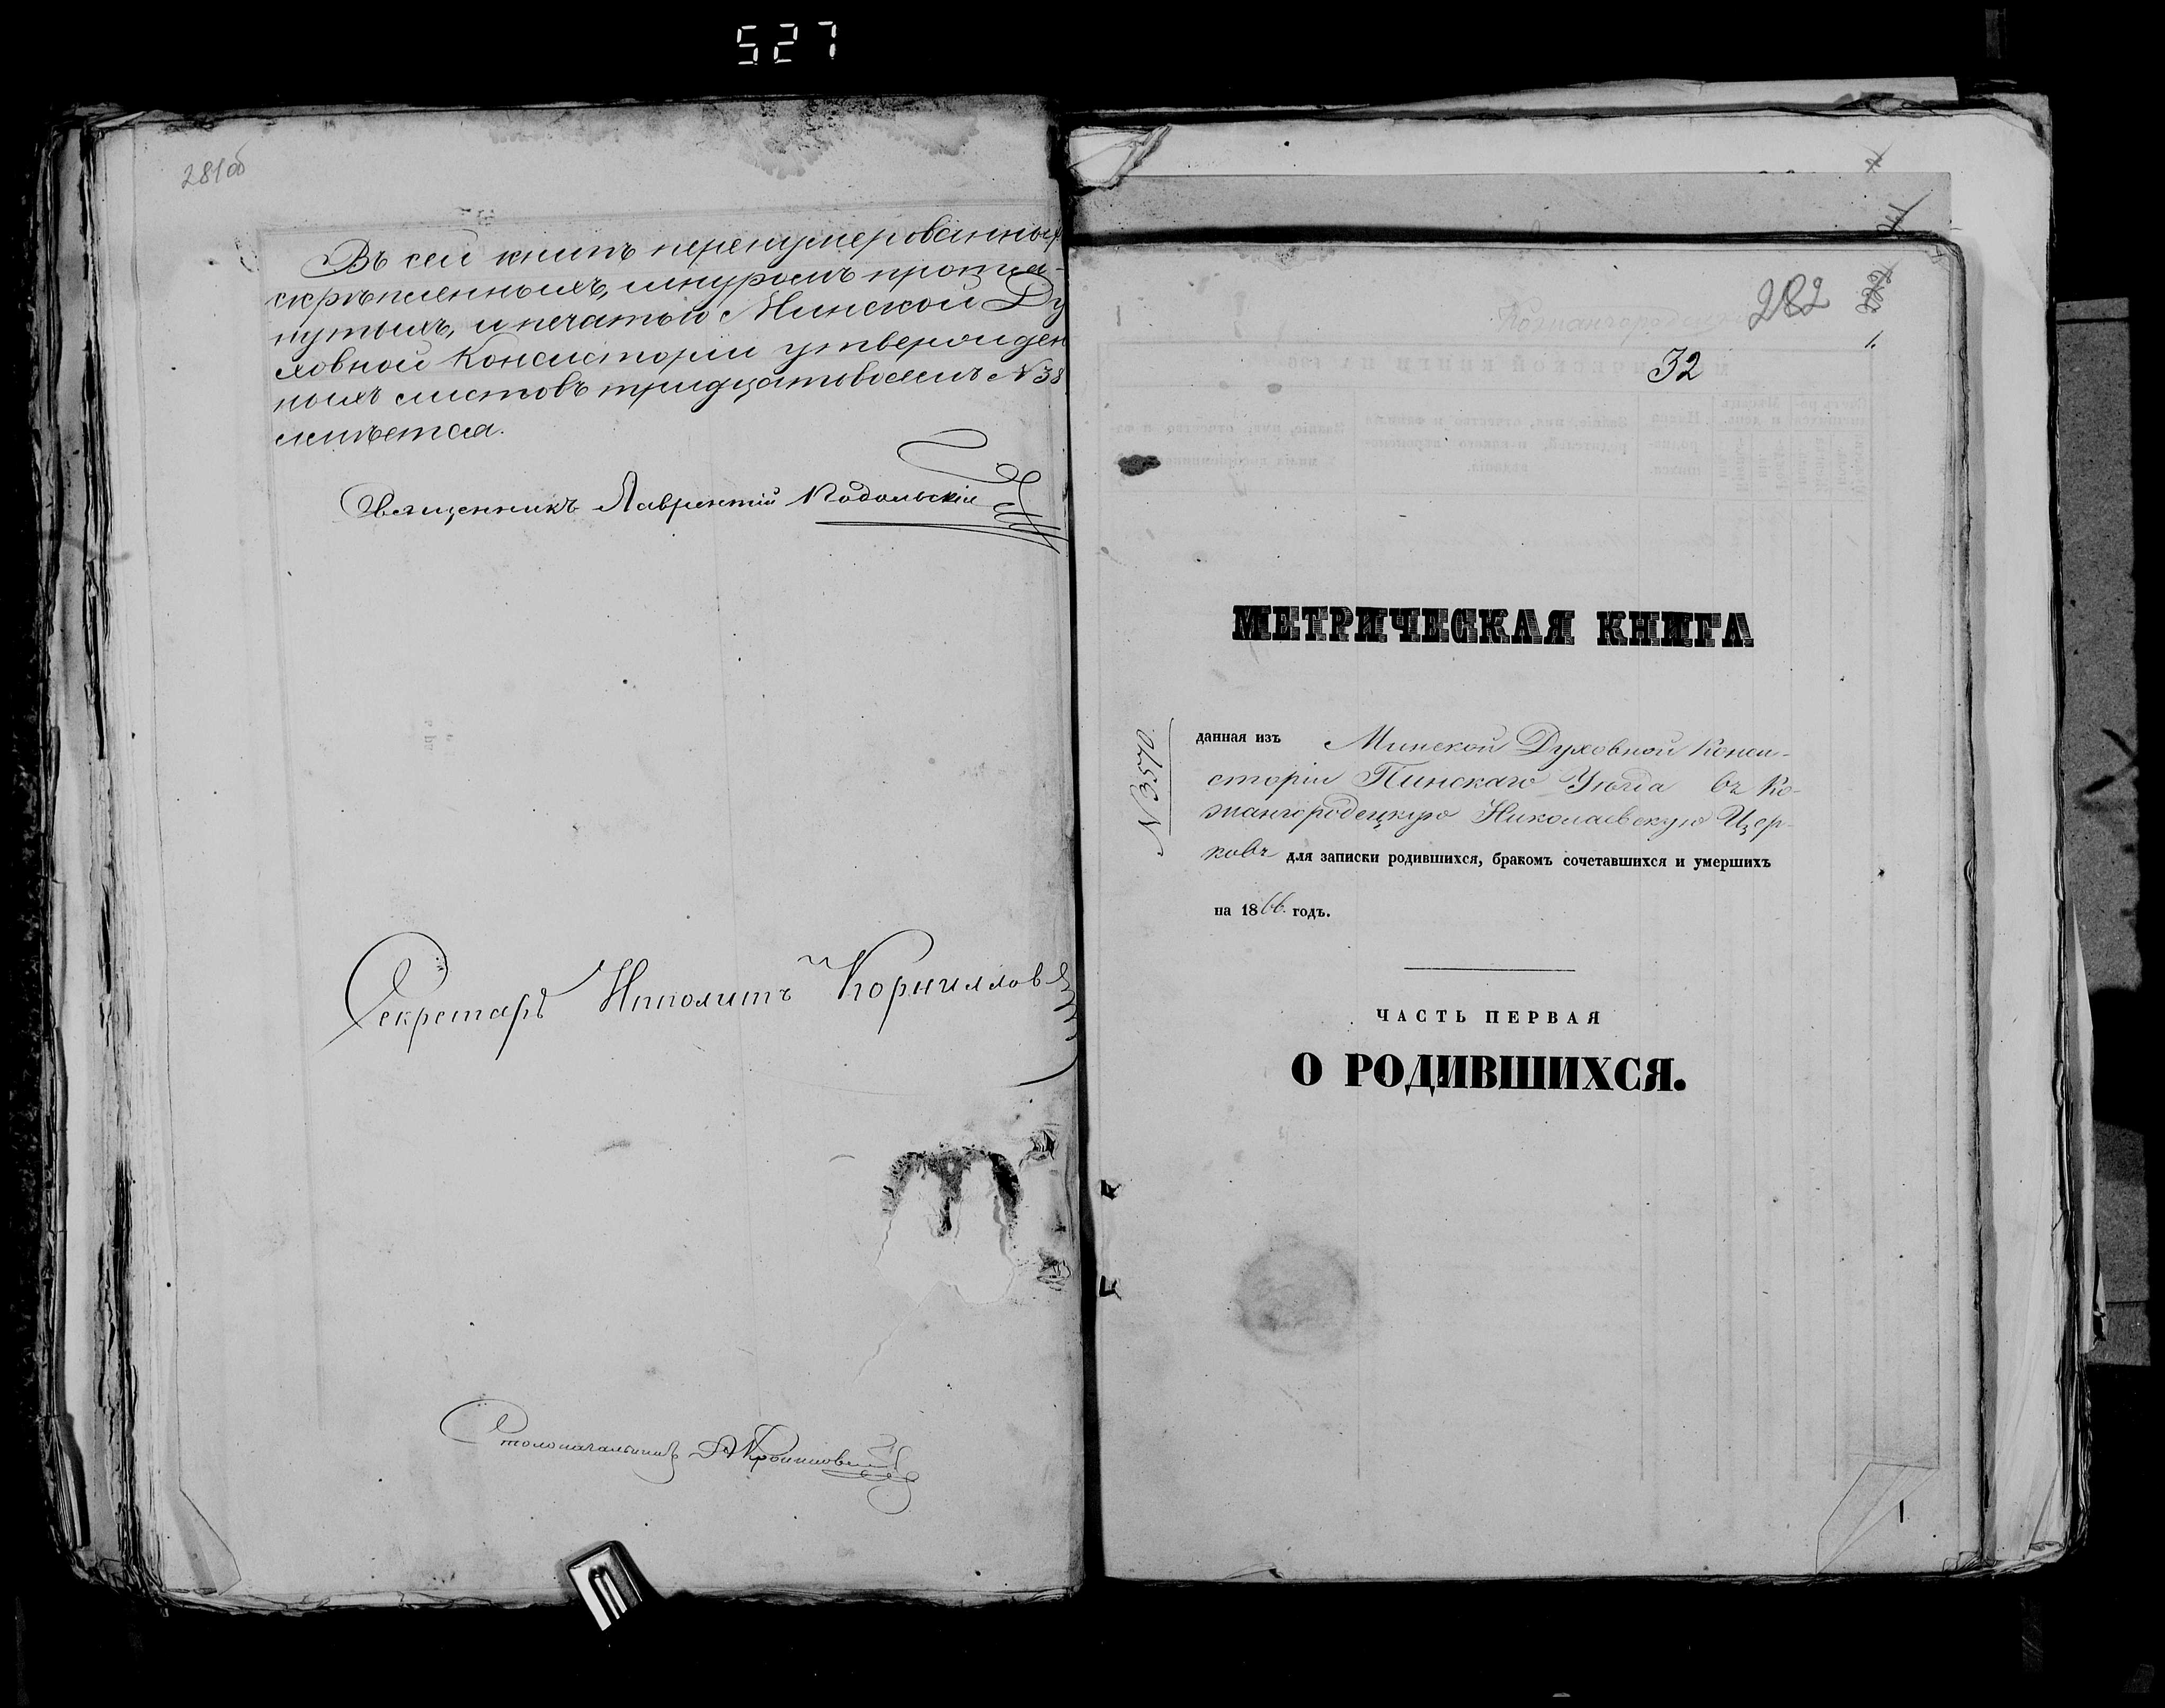 527
281об
Въ сей книгѣ перенумерованныхъ
скрѣпленныхъ, шнуромъ протяг-
нутыхъ, и печатью Минской Ду
ховной Консисторіи утвержден
ныхъ листовъ тридцатьвосемь № 38
имѣется.
Священникъ Лаврентій Подольскій
Секретарь Ипполитъ Корнилловъ
Столоначальникъ
282
32
1.
МЕТРИЧЕСКАЯ КНИГА
№ 3570
данная изъ Минской Духовной Конси-
сторіи Пинскаго Уѣзда въ Ко-
жангородецкую Николаевскую Цер-
ковь для записки родившихся, бракомъ сочетавшихся и умершихъ
на 1866. годъ.
ЧАСТЬ ПЕРВАЯ
О РОДИВШИХСЯ.
1